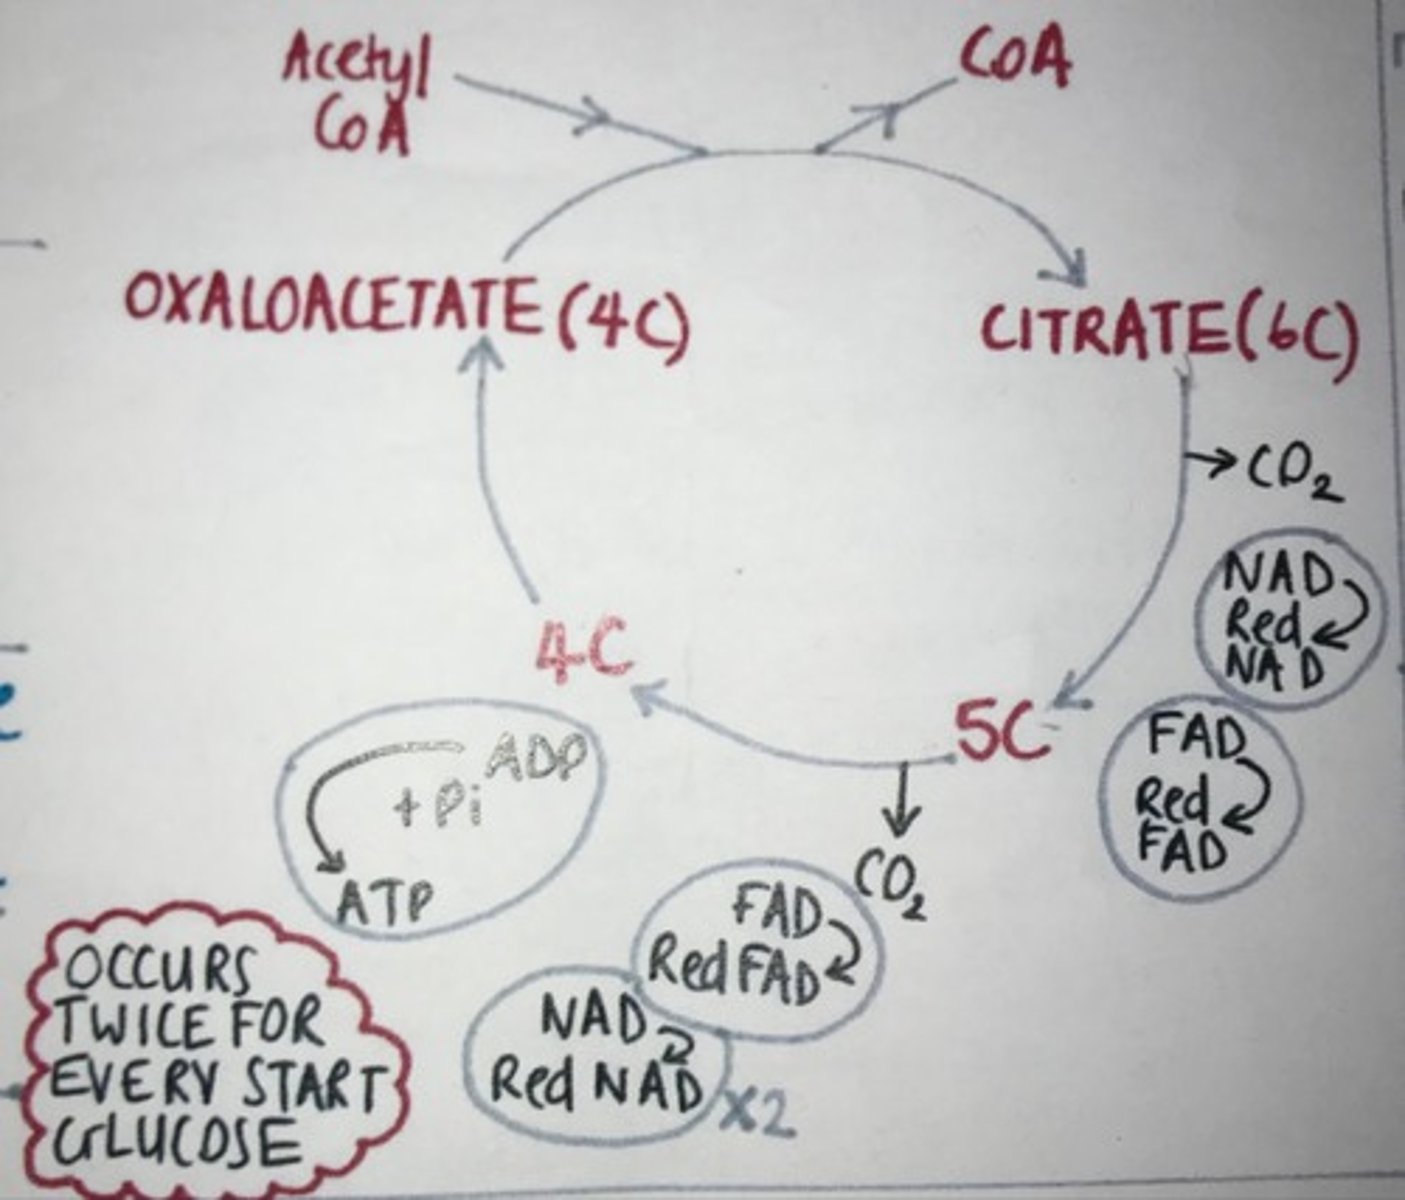 Acetyl
CoA
CoA
OXALOACETATE (4C)
CITRATE (6C)
CO2
NAD
Red
NAD
4C
5C
FAD
Red
FAD
ADP
+ Pi
ATP
CO2
FAD
Red FAD
NAD
Red NAD
x2
OCCURS
TWICE FOR
EVERY START
GLUCOSE